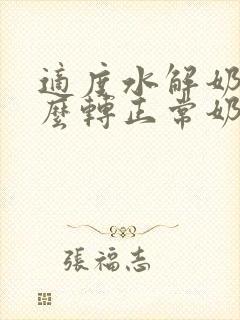 適度水解奶
麼轉正常奶
張福志